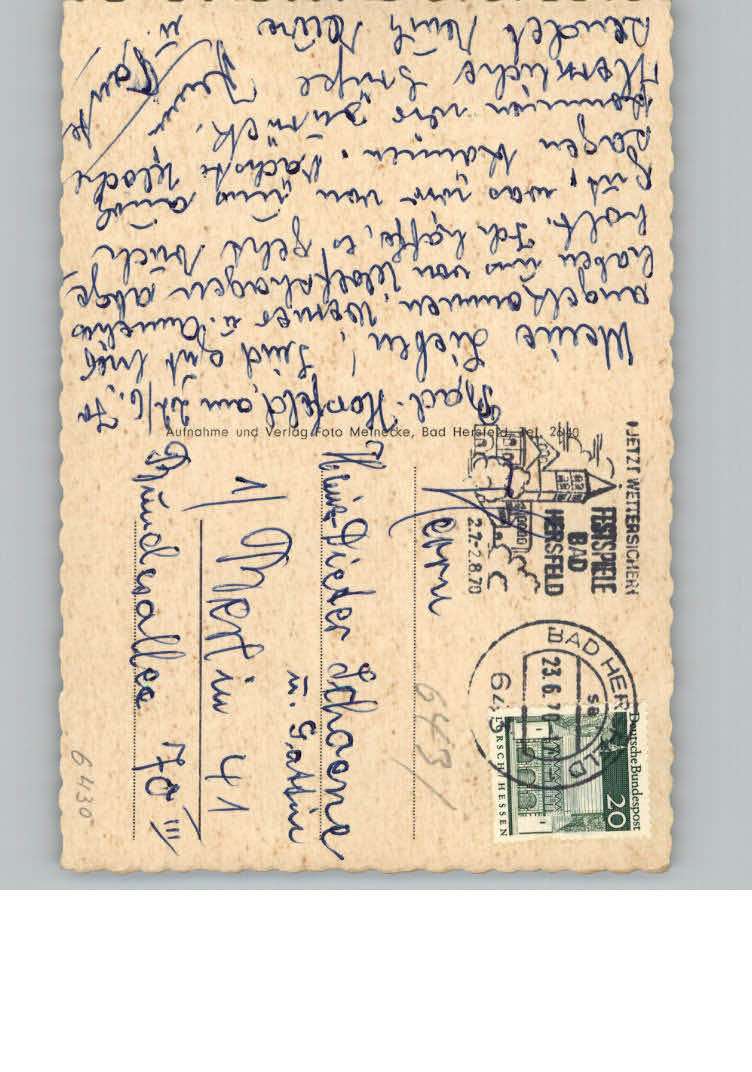 Bad-Hersfeld, am 22/6. 70
Meine Lieben! Sind gut hier
angekommen, Werner u. Annelies
haben uns von Wolfshagen abge-
holt. Ich hoffe, es geht Euch
gut, was wir von uns auch
sagen können. Nächste Woche
kommen wir zurück.
Herzliche Grüße
sendet Euch Eure
u.
Aufnahme und Verlag Foto Meinecke, Bad Hersfeld, Tel. 2640
JETZT WETTERSICHER!
FESTSPIELE
BAD
HERSFELD
2.7.-2.8.70
BAD HERSFELD
23.6.70
643
Deutsche Bundespost
20
LORSCH/HESSEN
Herrn
Heinz-Dieter Schaone
u. Gattin
1/ Berlin 41
Bundesallee 70 III
6431
6430